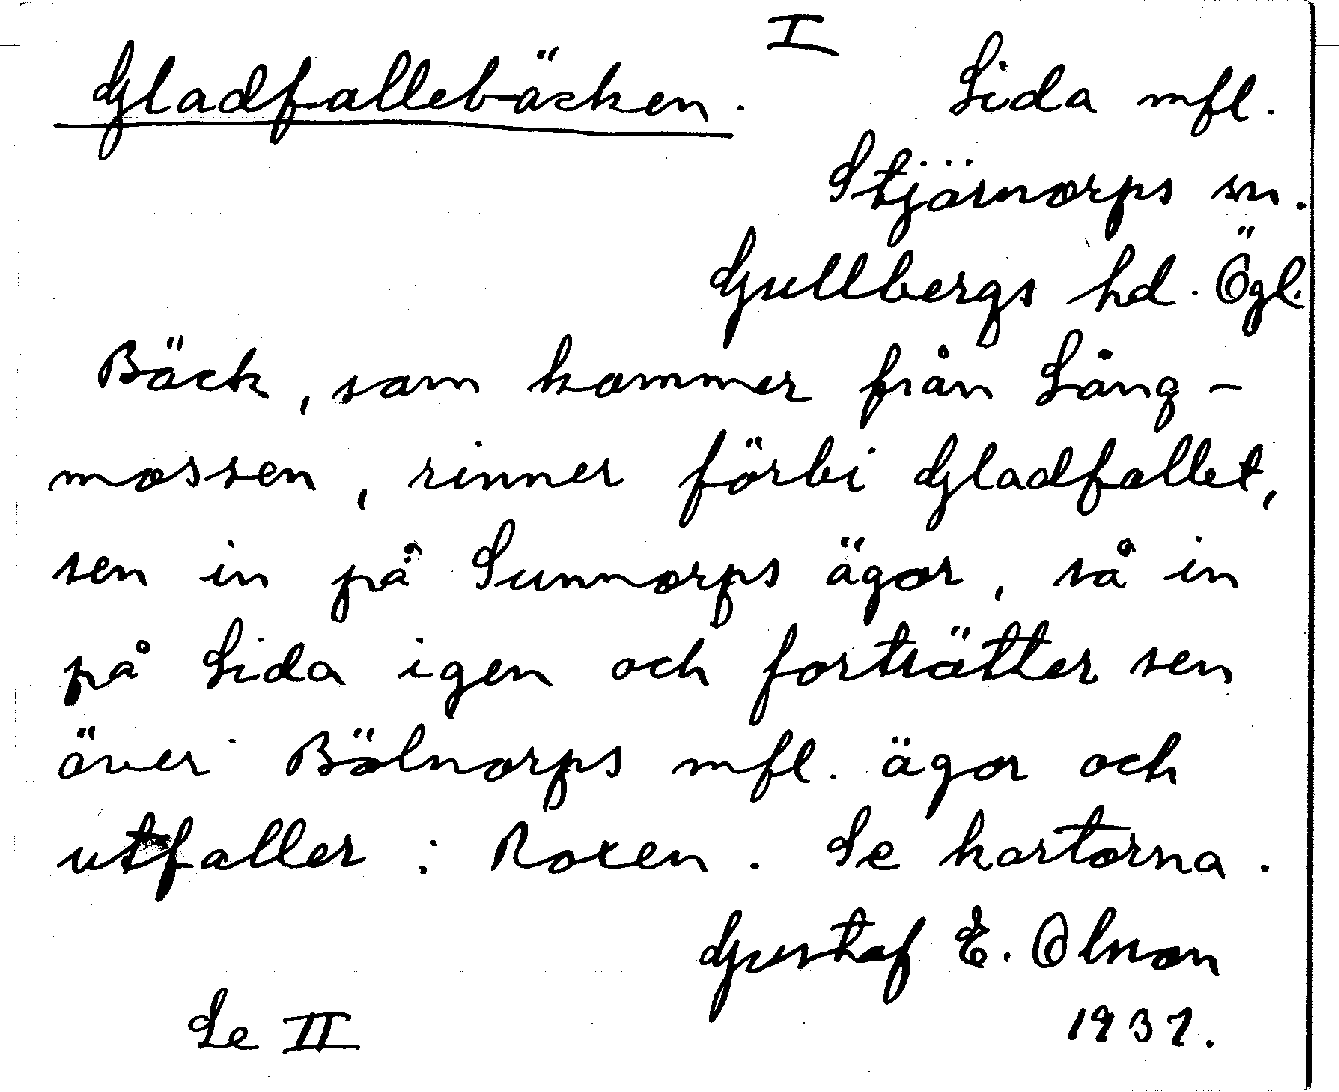 I
Gladfallebäcken. Lida mfl.
Stjärnorps sn.
Gullbergs hd. Ögl.
Bäck, som kommer från Lång-
mossen, rinner förbi Gladfallet,
sen in på Sunnorps ägor, så in
på Lida igen och fortsätter sen
över Bölnorps mfl. ägor och
utfaller i Roxen. Se kartorna.
Gustaf E. Olsson
Se II 1937.